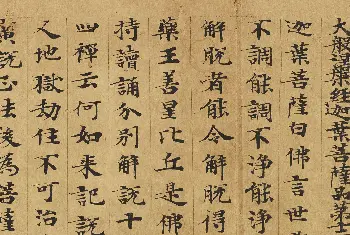 大般涅槃經迦葉菩薩品第十
迦葉菩薩白佛言世
不調能調不淨能淨
解脫者能令解脫得
藥王善星比丘是佛
持讀誦分別解說十
四禪云何如來記說
人地獄劫住不可治
廣說正法後為菩薩